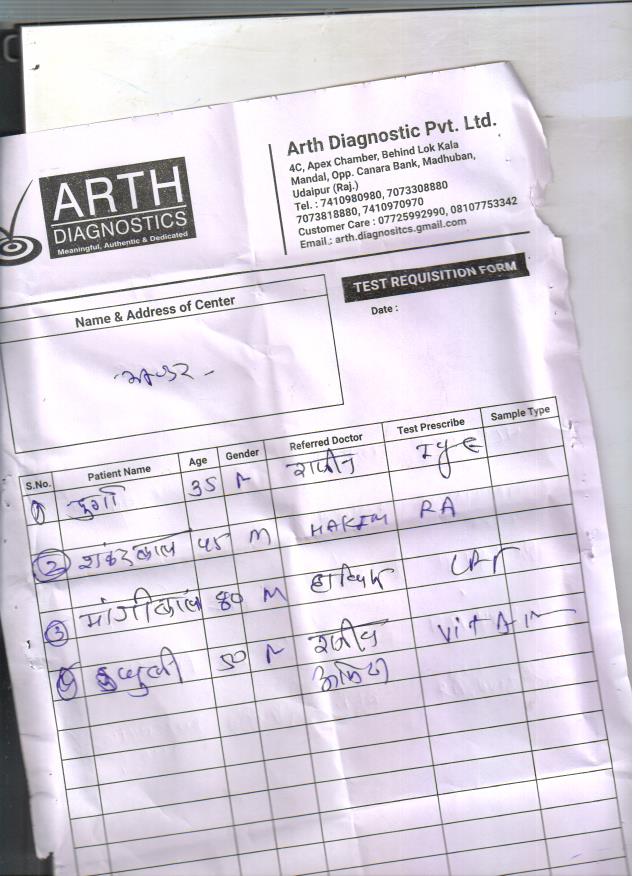 ARTH
DIAGNOSTICS
Meaningful, Authentic & Dedicated
Arth Diagnostic Pvt. Ltd.
4C, Apex Chamber, Behind Lok Kala
Mandal, Opp. Canara Bank, Madhuban,
Udaipur (Raj.)
Tel. : 7410980980, 7073308880
7073818880, 7410970970
Customer Care : 07725992990, 08107753342
Email : arth.diagnositcs.gmail.com
TEST REQUISITION FORM
Name & Address of Center
Date :
S.No. Patient Name Age Gender Referred Doctor Test Prescribe Sample Type
1 दुर्गा 35 IgE
2 शंकरलाल 45 M HAKIM RA
3 मांगीलाल 80 M
50 Vit